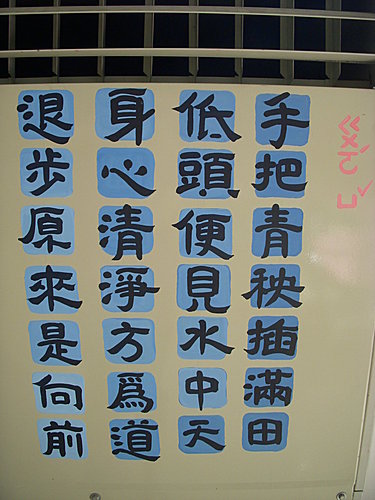 手把青秧插滿田
低頭便見水中天
身心清淨方為道
退步原來是向前